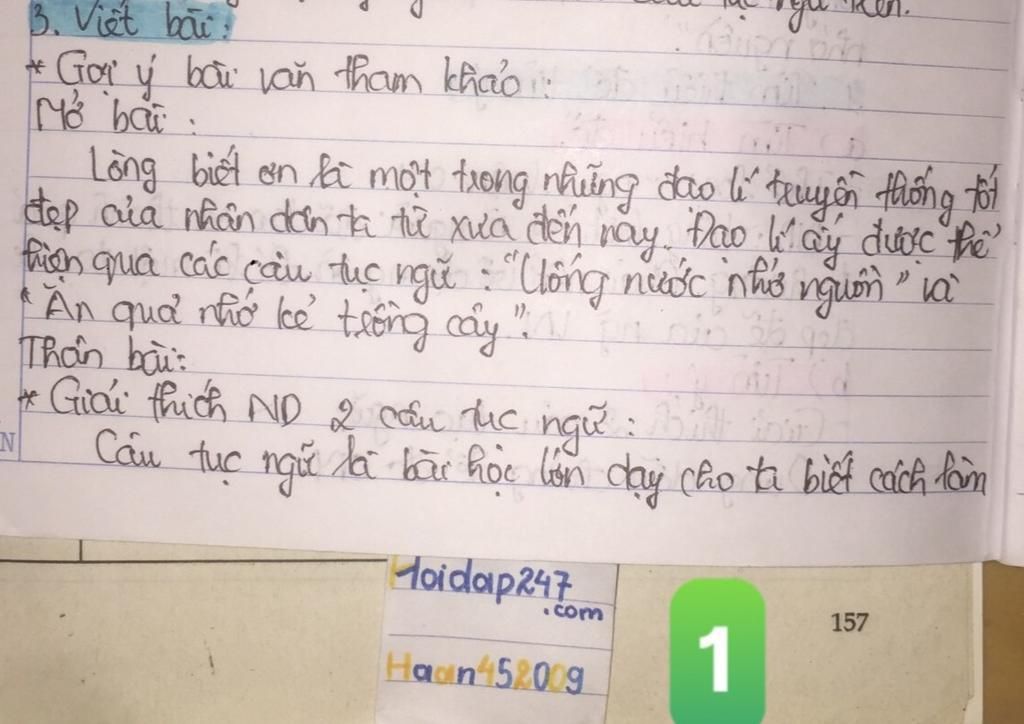 tục ngữ trên.
3. Viết bài:
* Gợi ý bài văn tham khảo:
Mở bài:
Lòng biết ơn là một trong những đạo lí truyền thống tốt
đẹp của nhân dân ta từ xưa đến nay. Đạo lí ấy được thể
hiện qua các câu tục ngữ: "Uống nước nhớ nguồn" và
"Ăn quả nhớ kẻ trồng cây".
Thân bài:
* Giải thích ND 2 câu tục ngữ:
N
Câu tục ngữ là bài học lớn dạy cho ta biết cách làm
Hoidap247
.com
Haan452009
1
157